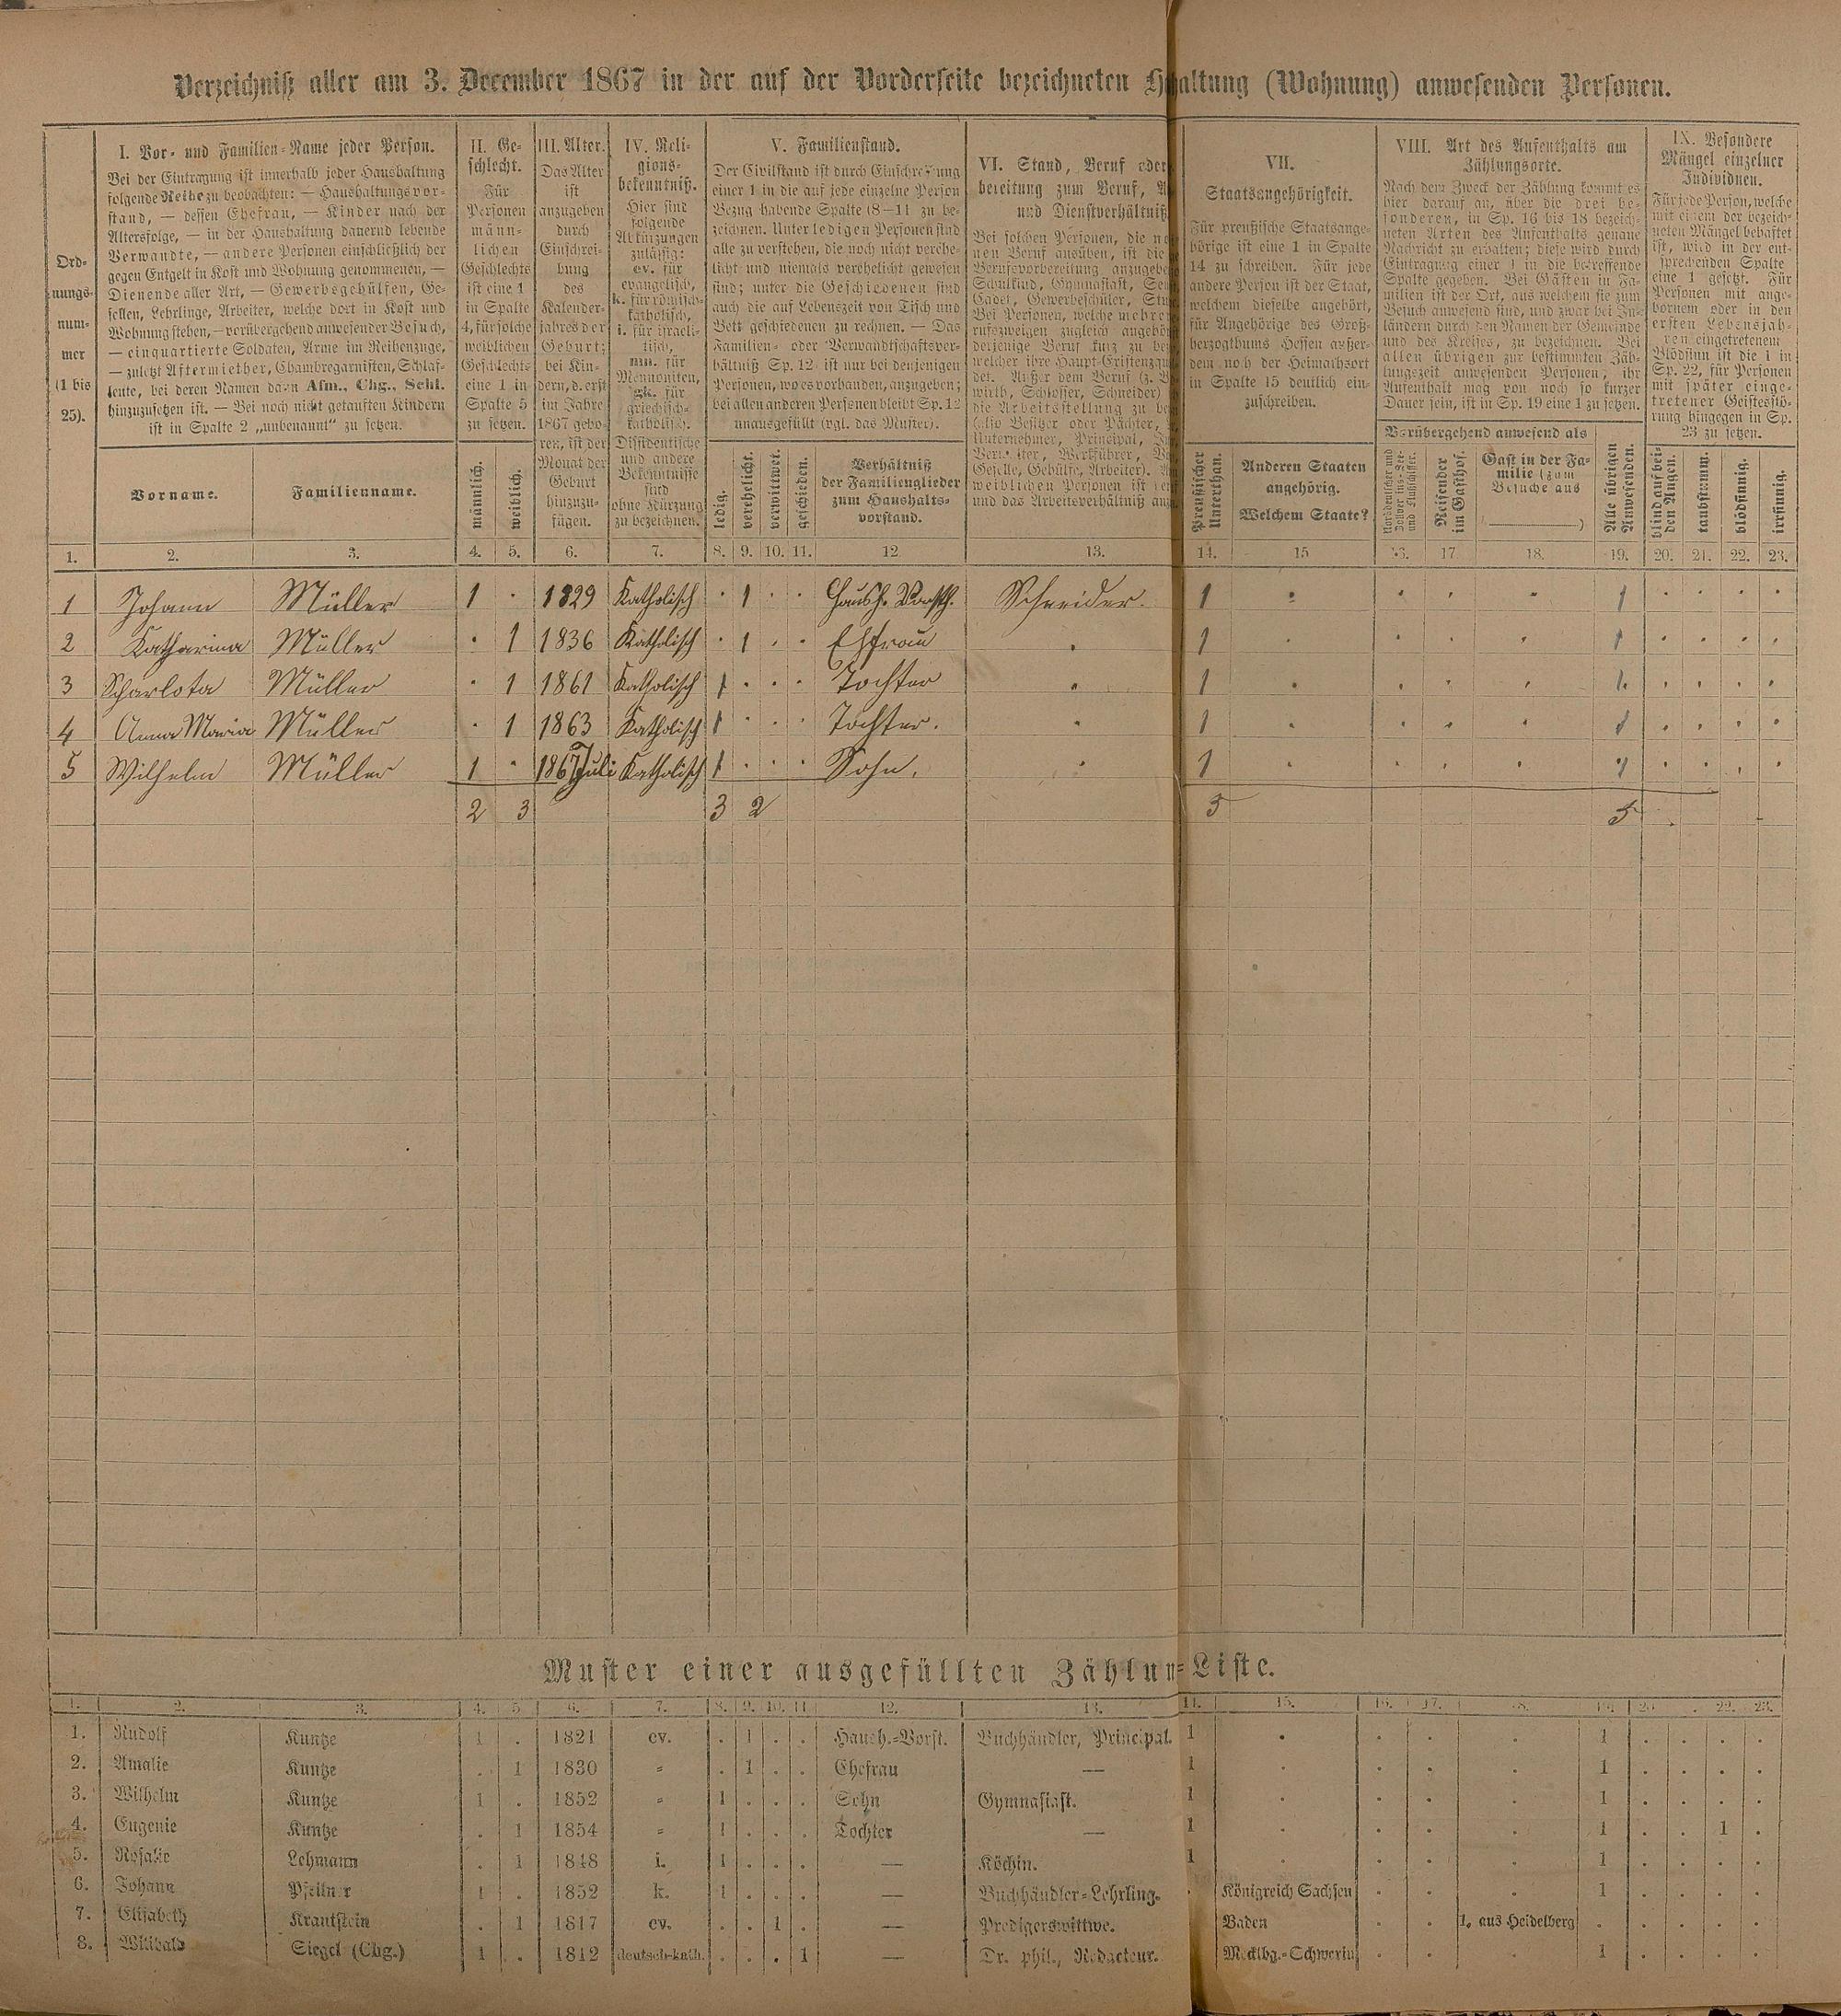 Verzeichniß aller am 3. December 1867 in der auf der Vorderseite bezeichneten H haltung (Wohnung) anwesenden Personen.
Ord-
nungs-
num-
mer
(1 bis
25).
I. Vor- und Familien-Name jeder Person.
Bei der Eintragung ist innerhalb jeder Haushaltung
folgende Reihe zu beobachten: — Haushaltungsvor-
stand, — dessen Ehefrau, — Kinder nach der
Altersfolge, — in der Haushaltung dauernd lebende
Verwandte, — andere Personen einschließlich der
gegen Entgelt in Kost und Wohnung genommenen, —
Dienende aller Art, — Gewerbsgehülfen, Ge-
sellen, Lehrlinge, Arbeiter, welche dort in Kost und
Wohnung stehen, — vorübergehend anwesender Besuch,
— einquartierte Soldaten, Arme im Reihenzuge,
— zuletzt Aftermiether, Chambregarnisten, Schlaf-
leute, bei deren Namen dann Afm., Chg., Schl.
hinzuzusetzen ist. — Bei noch nicht getauften Kindern
ist in Spalte 2 „unbenannt“ zu setzen.
Vorname.
Familienname.
II. Ge-
schlecht.
Für
Personen
männ-
lichen
Geschlechts
ist eine 1
in Spalte
4, für solche
weiblichen
Geschlechts
eine 1 in
Spalte 5
zu setzen.
männlich.
weiblich.
III. Alter.
Das Alter
ist
anzugeben
durch
Einschrei-
bung
des
Kalender-
jahres der
Geburt;
bei Kin-
dern, d. erst
im Jahre
1867 gebo-
ren, ist der
Monat der
Geburt
hinzuzu-
fügen.
IV. Reli-
gions-
bekenntniß.
Hier sind
folgende
Abkürzungen
zulässig:
ev. für
evangelisch,
k. für römisch-
katholisch,
i. für israeli-
tisch,
mn. für
Mennoniten,
gk. für
griechisch-
katholisch.
Dissidentische
und andere
Bekenntnisse
sind
ohne Kürzung
zu bezeichnen.
V. Familienstand.
Der Civilstand ist durch Einschreibung
einer 1 in die auf jede einzelne Person
Bezug habende Spalte (8—11) zu be-
zeichnen. Unter ledigen Personen sind
alle zu verstehen, die noch nicht verehe-
licht und niemals verehelicht gewesen
sind; unter die Geschiedenen sind
auch die auf Lebenszeit von Tisch und
Bett geschiedenen zu rechnen. — Das
Familien- oder Verwandtschaftsver-
hältniß Sp. 12 ist nur bei denjenigen
Personen, wo es vorhanden, anzugeben;
bei allen anderen Personen bleibt Sp. 12
unausgefüllt (vgl. das Muster).
ledig.
verehelicht.
verwittwet.
geschieden.
Verhältniß
der Familienglieder
zum Haushalts-
vorstand.
VI. Stand, Beruf oder
bereitung zum Beruf, A
und Dienstverhältniß
Bei solchen Personen, die no
nen Beruf ausüben, ist die
Berufsvorbereitung anzugebe
Schulkind, Gymnasiast, Sem
Cadet, Gewerbeschüler, Stu
Bei Personen, welche mehrer
rufszweigen zugleich angehö
derjenige Beruf kurz zu be
welcher ihre Haupt-Existenzqu
det. Außer dem Beruf (z. B
wirth, Schlosser, Schneider)
die Arbeitsstellung zu be
(also Besitzer oder Pächter,
Unternehmer, Principal, In
Verwalter, Werkführer,
Geselle, Gehülfe, Arbeiter).
weiblichen Personen ist
und das Arbeitsverhältniß an
VII.
Staatsangehörigkeit.
Für preußische Staatsange-
hörige ist eine 1 in Spalte
14 zu schreiben. Für jede
andere Person ist der Staat,
welchem dieselbe angehört,
für Angehörige des Groß-
herzogthums Hessen außer-
dem noch der Heimathsort
in Spalte 15 deutlich ein-
zuschreiben.
Preußischer
Unterthan.
Anderen Staaten
angehörig.
Welchem Staate?
VIII. Art des Aufenthalts am
Zählungsorte.
Nach dem Zweck der Zählung kommt es
hier darauf an, über die drei be-
sonderen, in Sp. 16 bis 18 bezeich-
neten Arten des Aufenthalts genaue
Nachricht zu erhalten; diese wird durch
Eintragung einer 1 in die betreffende
Spalte gegeben. Bei Gästen in Fa-
milien ist der Ort, aus welchem sie zum
Besuch anwesend sind, und zwar bei In-
ländern durch den Namen der Gemeinde
und des Kreises, zu bezeichnen. Bei
allen übrigen zur bestimmten Zäh-
lungszeit anwesenden Personen, ihr
Aufenthalt mag von noch so kurzer
Dauer sein, ist in Sp. 19 eine 1 zu setzen.
Vorübergehend anwesend als
Reisender
im Gasthof.
Gast in der Fa-
milie (zum
Besuche aus
)
Alle übrigen
Anwesenden.
IX. Besondere
Mängel einzelner
Individuen.
Für jede Person, welche
mit einem der bezeich-
neten Mängel behaftet
ist, wird in der ent-
sprechenden Spalte
eine 1 gesetzt. Für
Personen mit ange-
bornem oder in den
ersten Lebensjah-
ren eingetretenem
Blödsinn ist die 1 in
Sp. 22, für Personen
mit später einge-
tretener Geistesstö-
rung hingegen in Sp.
23 zu setzen.
blind auf bei-
den Augen.
taubstumm.
blödsinnig.
irrsinnig.
1. 2. 3. 4. 5. 6. 7. 8. 9. 10. 11. 12 13. 14. 15 16. 17 18. 19. 20. 21. 22. 23.
1 Johann Müller 1 · 1829 Katholisch · 1 · · Haush. Vorsth. Schneider. 1 · · · · 1 · · · ·
2 Katharina Müller · 1 1836 Katholisch · 1 · · Ehfrau · 1 · · · · 1 · · · ·
3 Scharlota Müller · 1 1861 Katholisch 1 · · · Tochter · 1 · · · · 1 · · · ·
4 Anna Maria Müller · 1 1863 Katholisch 1 · · · Tochter. · 1 · · · · 1 · · · ·
5 Wilhelm Müller 1 · 1867 Juli Katholisch 1 · · · Sohn. · 1 · · · · 1 · · · ·
2 3 3 2 5 5
Muster einer ausgefüllten Zählun-Liste.
1. 2. 3. 4. 5. 6. 7. 8. 9. 10. 11. 12. 13. 14. 15. 16. 17. 18. 19. 20. 22. 23.
1. Rudolf Kuntze 1 . 1821 ev. . 1 . . Haush.-Vorst. Buchhändler, Principal. 1 . . . . 1 . . . .
2. Amalie Kuntze . 1 1830 „ . 1 . . Ehefrau — 1 . . . . 1 . . . .
3. Wilhelm Kuntze 1 . 1852 „ 1 . . . Sohn Gymnasiast. 1 . . . . 1 . . . .
4. Eugenie Kuntze . 1 1854 „ 1 . . . Tochter — 1 . . . . 1 . . 1 .
5. Rosalie Lehmann . 1 1848 i. 1 . . . — Köchin. 1 . . . . 1 . . . .
6. Johann Pfeilner 1 . 1852 k. 1 . . . — Buchhändler-Lehrling. . Königreich Sachsen . . . 1 . . . .
7. Elisabeth Krautstein . 1 1817 ev. . . 1 . — Predigerswittwe. . Baden . . 1. aus Heidelberg . . . . .
8. Willibald Siegel (Chg.) 1 . 1812 deutsch-kath. . . . 1 — Dr. phil., Redacteur. Mecklbg.-Schwerin . . . 1 . . . .